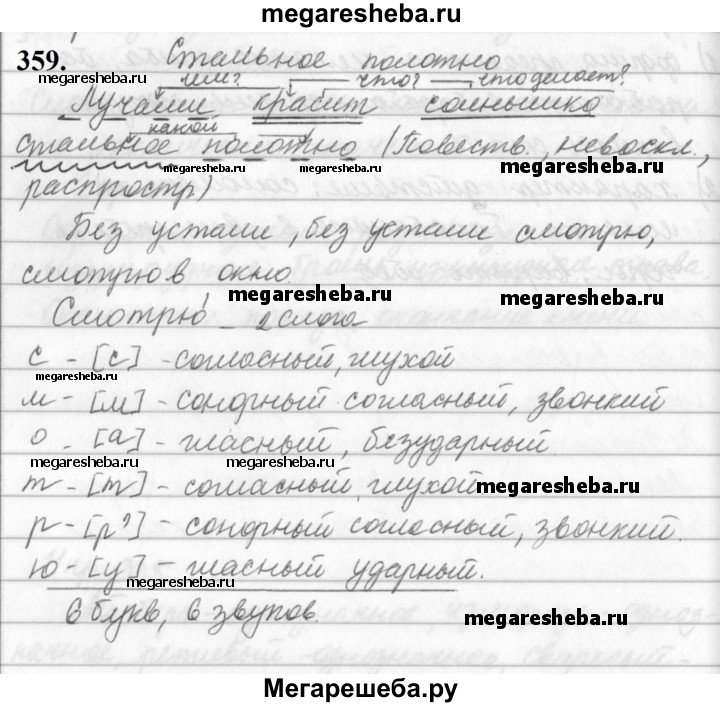 megaresheba.ru
359. Стальное полотно
megaresheba.ru чем? что? что делает?
Лучами красит солнышко
megaresheba.ru
какой
стальное полотно (Повеств., невоскл.,
megaresheba.ru megaresheba.ru
распростр)
Без устали, без устали смотрю,
смотрю в окно.
megaresheba.ru megaresheba.ru
Смотрю – 2 слога
с – [с] – согласный, глухой
megaresheba.ru
м – [м] – сонорный согласный, звонкий
о – [а] – гласный, безударный
megaresheba.ru megaresheba.ru
т – [т] – согласный, глухой
megaresheba.ru
р – [р'] – сонорный согласный, звонкий.
ю – [у] – гласный ударный.
megaresheba.ru
6 букв, 6 звуков.
Мегарешеба.ру